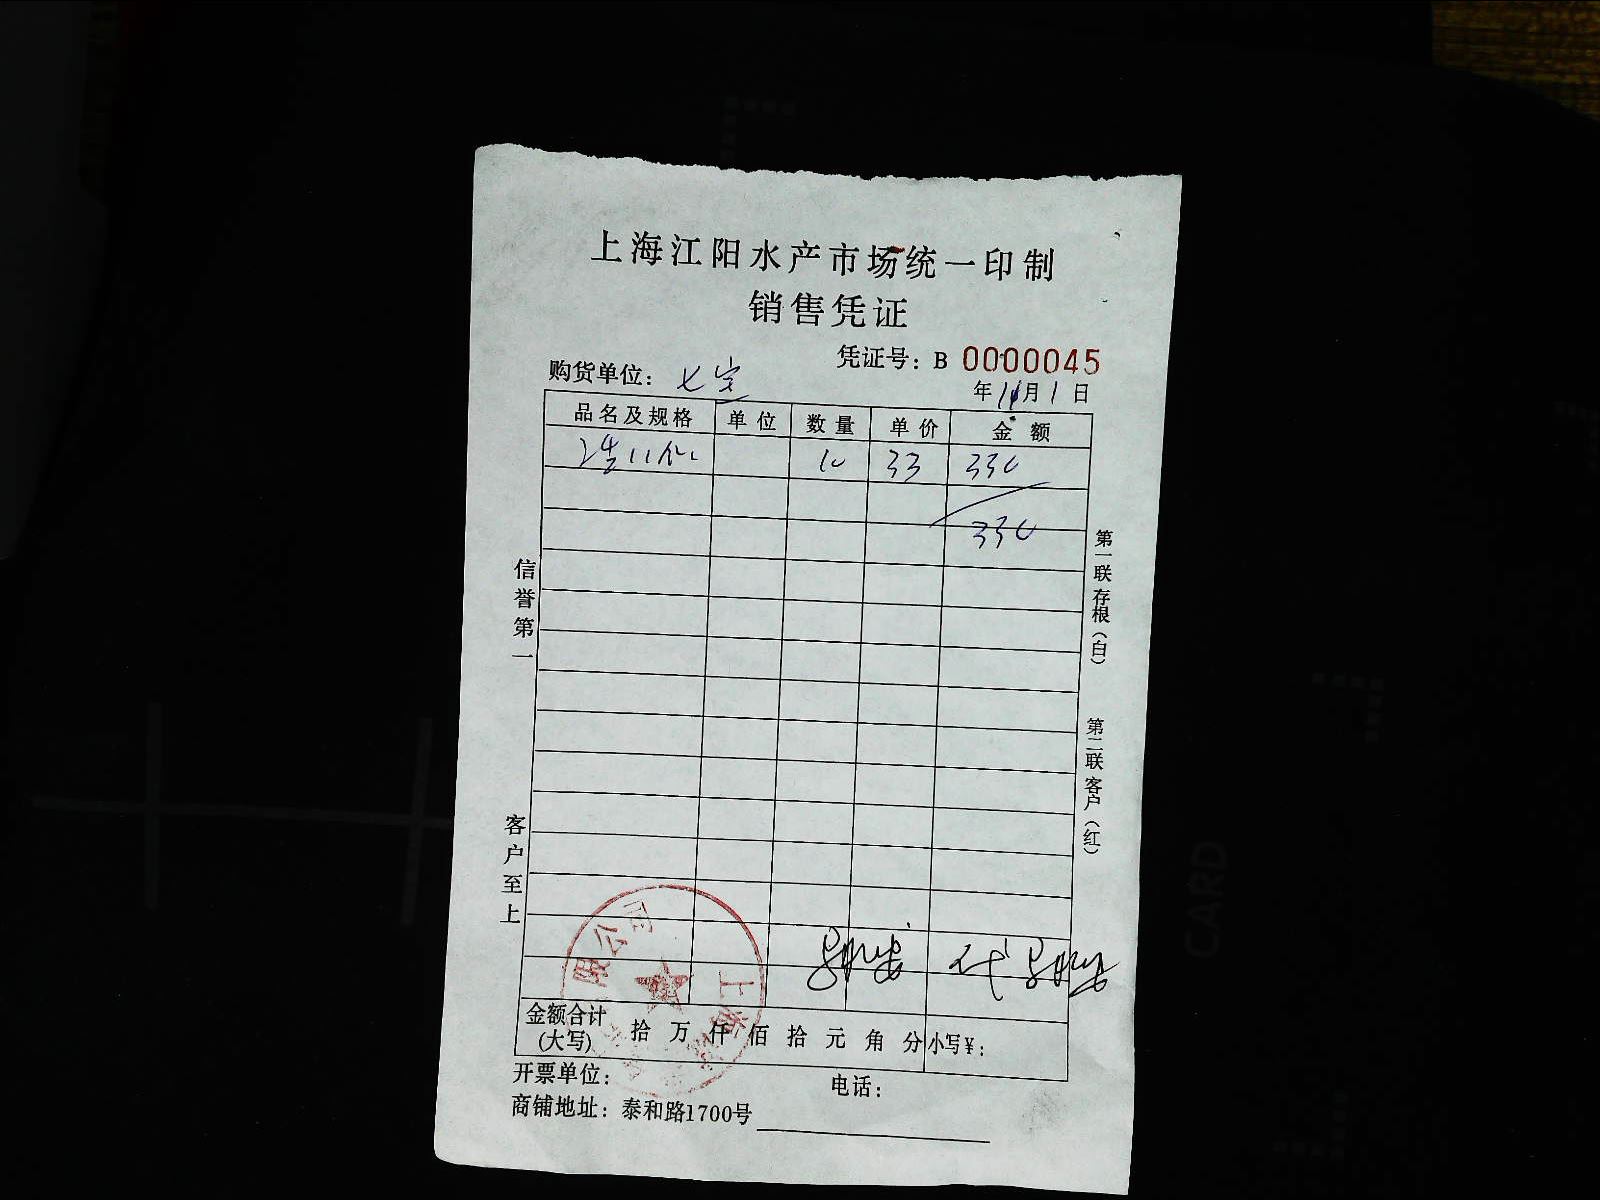 上海江阳水产市场统一印制
销售凭证
凭证号：B 0000045
购货单位：七宝
年11月1日
品名及规格 单位 数量 单价 金额
10 33 330
330
信誉第一
客户至上
第一联存根（白）
第二联客户（红）
限公司
上海
金额合计（大写） 拾 万 仟 佰 拾 元 角 分 小写¥：
开票单位： 电话：
商铺地址：泰和路1700号
CARD